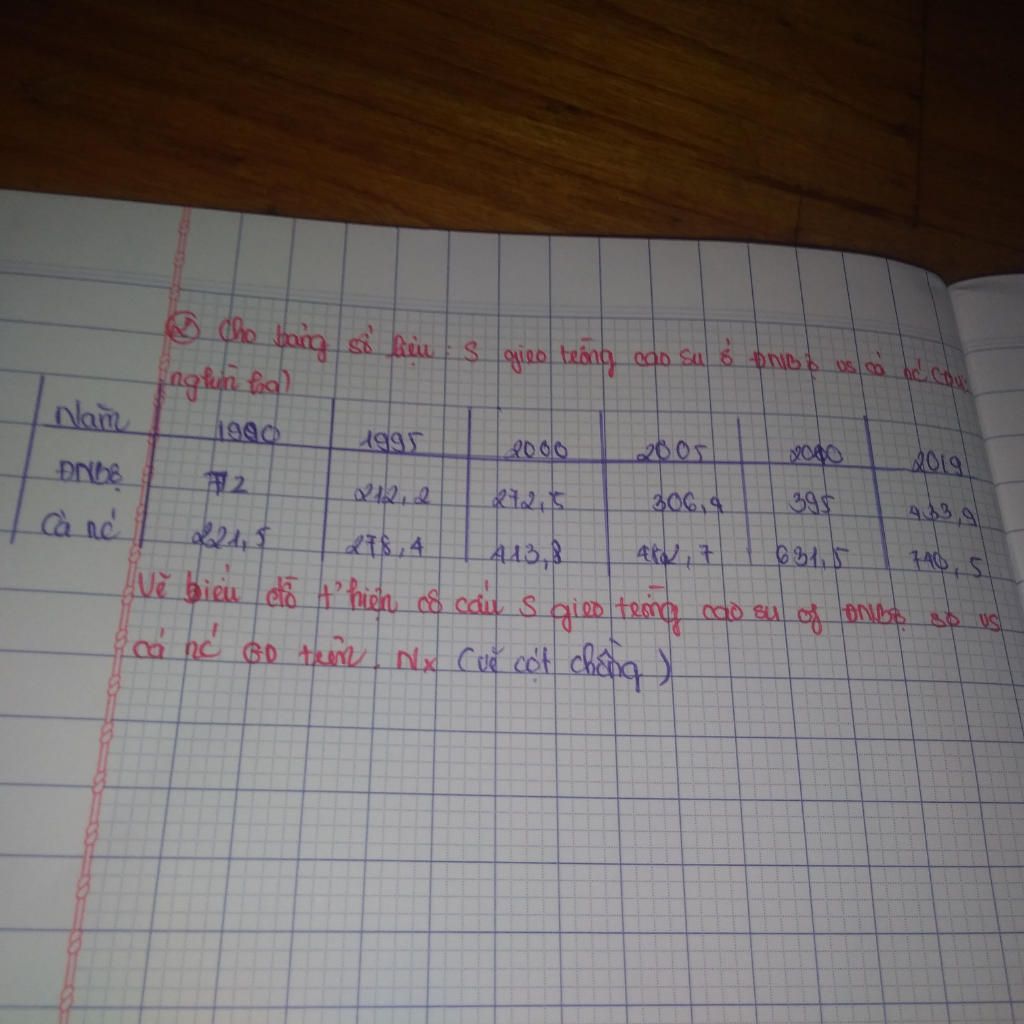 ② Cho bảng số liệu: S gieo trồng cao su ở ĐNBộ vs cả nc (đv:
nghìn ha)
Năm 1990 1995 2000 2005 2010 2019
ĐNBộ 72 212,2 272,5 306,4 395 433,9
Cả nc 221,5 278,4 413,8 482,7 631,5 740,5
Vẽ biểu đồ t'hiện cơ cấu S gieo trồng cao su of ĐNBộ so vs
cả nc GĐ trên. Nx (vẽ cột chồng)